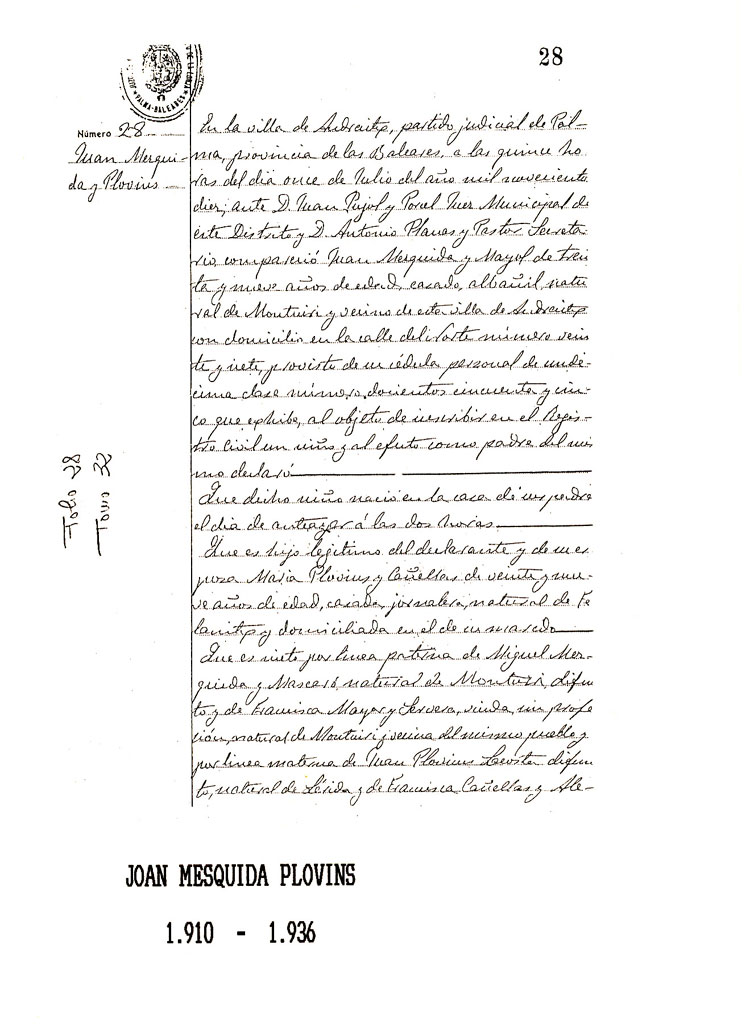 28
PALMA-BALEARES
Número 28
Juan Mesqui-
da y Plovins
En la villa de Andraitx, partido judicial de Pal-
ma, provincia de las Baleares, a las quince ho
ras del dia once de Julio del año mil noveciento
diez; ante D. Juan Pujol y Porcel Juez Municipal de
este Distrito y D. Antonio Planas y Pastor Secreta-
rio compareció Juan Mesquida y Mayol de trein
ta y nueve años de edad, casado, albañil, natu
ral de Montuiri y vecino de esta villa de Andraitx
con domicilio en la calle del Norte número vein
te y siete, provisto de su cédula personal de undé-
cima clase número doscientos cincuenta y cin-
co que exhibe, al objeto de inscribir en el Regis-
tro Civil un niño y al efecto como padre del mis
mo declaró
Que dicho niño nació en la casa de sus padre
el dia de anteayer á las dos horas.
Que es hijo legítimo del declarante y de su es
posa Maria Plovins y Cañellas de veinte y nue-
ve años de edad, casada, jornalera, natural de Fe
lanitx y domiciliada en el de su marido
Que es nieto por linea paterna de Miguel Mes-
quida y Mascaró, natural de Montuiri, difun
to y de Francisca Mayol y Servera, viuda, sin profe
ción, natural de Montuiri y vecina del mismo pueblo y
por linea materna de Juan Plovins difun
to, natural de Lérida y de Francisca Cañellas y Ale-
Folio 28
Tomo 32
JOAN MESQUIDA PLOVINS
1.910 - 1.936